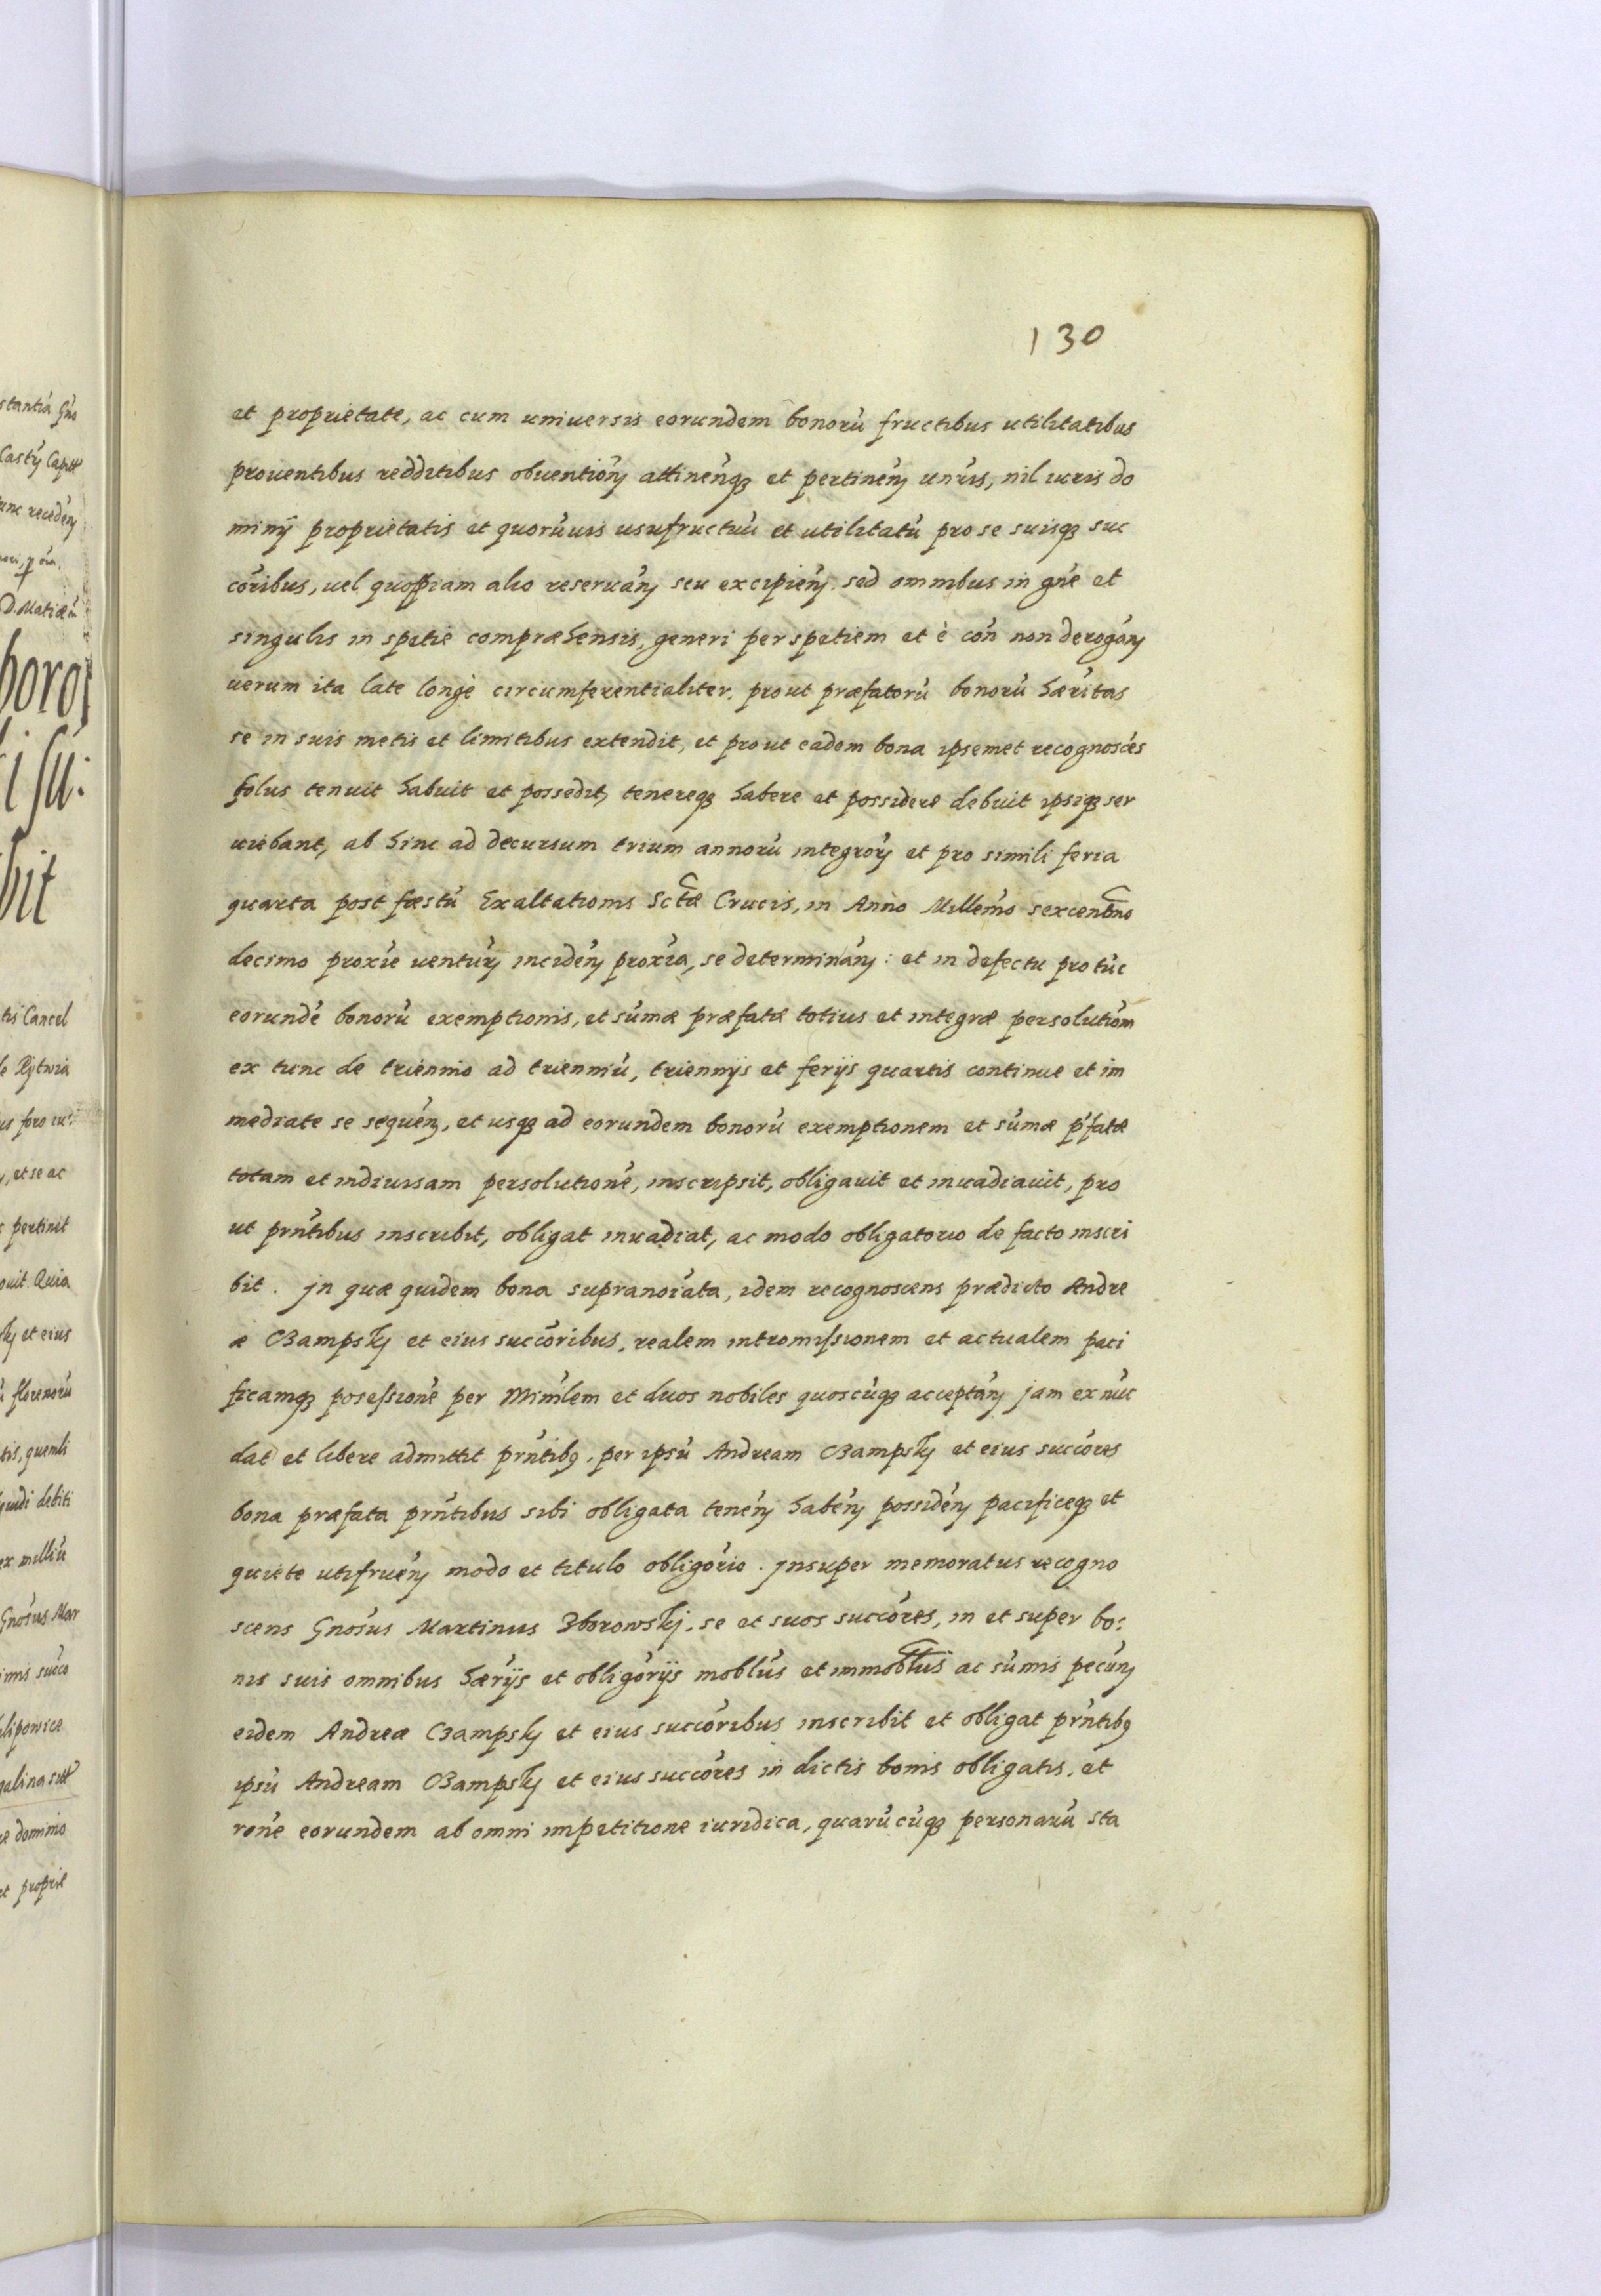 130
et proprietate, ac cum uniuersis eorundem bonorũ fructibus utilitatibus
prouentibus redditibus obuentioñ attineñq et pertineñ uñris, nil iuris do
minÿ proprietatis et quorũuis usufructuũ et utilitatũ pro se suisq suc
cõribus, uel quopiam alio reseruañ seu excipieñ. sed omnibus in gñe et
singulis in spetie compræhensis, generi per spetiem et è coñ non derogañ
uerum ita late longè circumferentialiter, prout præfatorũ bonorũ hæritas
se in suis metis et limitibus extendit, et prout eadem bona ipsemet recognoscẽs
solus tenuit habuit et possedit, tenereq habere et possidere debuit ipsiq ser
uiebant, ab hinc ad decursum trium annorũ integroꝝ et pro simili feria
quarta post fæstũ Exaltationis Sctæ Crucis, in Anno Millemo sexcentno
decimo proxie uentuꝝ incideñ proxia, se determinañ: et in defectu pro tũc
eorundẽ bonorũ exemptionis, et sũmæ præfatæ totius et integræ persolutiom
ex tunc de triennio ad trienniũ, triennijs et ferijs quartis continue et im
mediate se sequeñ, et usq ad eorundem bonorũ exemptionem et sũmæ p̃fatæ
totam et indiuisam persolutionẽ, inscripsit, obligauit et inuadiauit, pro
ut prñtibus inscribit, obligat inuadiat, ac modo obligatorio de facto inscri
bit. Jn quæ quidem bona supranoĩata, idem recognoscens prædicto Andre
æ Bampsky et eius succõribus, realem intromissionem et actualem paci
ficamq posessionẽ per Minlem et duos nobiles quoscũq acceptañ jam ex nũc
dat et libere admittit prñtibꝯ, per ipsũ Andream Bampsky et eius succõres
bona præfata prñtibus sibi obligata teneñ habeñ possideñ pacificeq et
quiete utifrueñ modo et titulo obligõrio. Jnsuper memoratus recogno
scens Gnosus Martinus Zborowskj, se et suos succõres, in et super bo:
nis suis omnibus hærijs et obligõrijs moblũs et immoblus ac sũmis pecuñ
eidem Andreæ Bampsky et eius succõribus inscribit et obligat prñtibꝯ
ipsũ Andream Bampsky et eius succõres in dictis bonis obligatis, et
rõne eorundem ab omni impetitione iuridica, quarũcũq personarũ sta